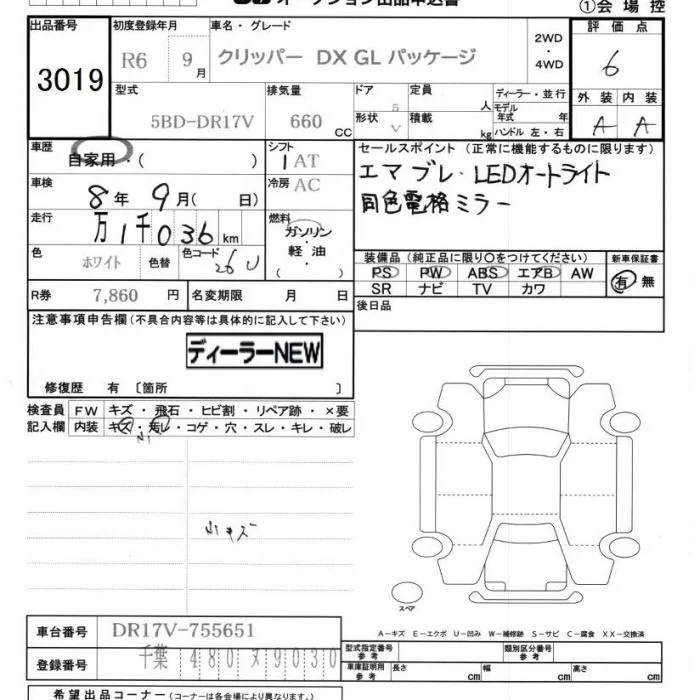 オークション出品申込書
①会場控
出品番号 3019
初度登録年月 R6 9月
車名・グレード クリッパー DX GL パッケージ
2WD・4WD
評価点 6
外装 A 内装 A
型式 5BD-DR17V
排気量 660 CC
ドア 5
形状 V
定員 人
積載 kg
ディーラー・並行
モデル年式 年
ハンドル 左・右
車歴 自家用・( )
シフト 1AT
セールスポイント (正常に機能するものに限ります)
エマブレ・LEDオートライト
同色電格ミラー
車検 8年 9月( 日)
冷房 AC
走行 万1千036km
燃料 ガソリン・軽油・( )
色 ホワイト 色替 色コード 26U
装備品 (純正品に限り〇をつけてください)
PS PW ABS エアB AW
SR ナビ TV カワ
新車保証書 有 無
R券 7,860 円 名変期限 月 日
後日品
注意事項申告欄 (不具合内容等は具体的に記入して下さい)
ディーラーNEW
修復歴 有 〔箇所 〕
検査員記入欄
FW キズ・飛石・ヒビ割・リペア跡・×要
内装 キズ・汚レ・コゲ・穴・スレ・キレ・破レ
小キズ
スペア
A-キズ E-エクボ U-凹み W-補修跡 S-サビ C-腐食 XX-交換済
車台番号 DR17V-755651
登録番号 千葉 480 ヌ 9030
型式指定番号 参考 類別区分番号 参考
車庫証明用 参考 長さ cm 幅 cm 高さ cm
希望出品コーナー (コーナーは各会場により異なります。)